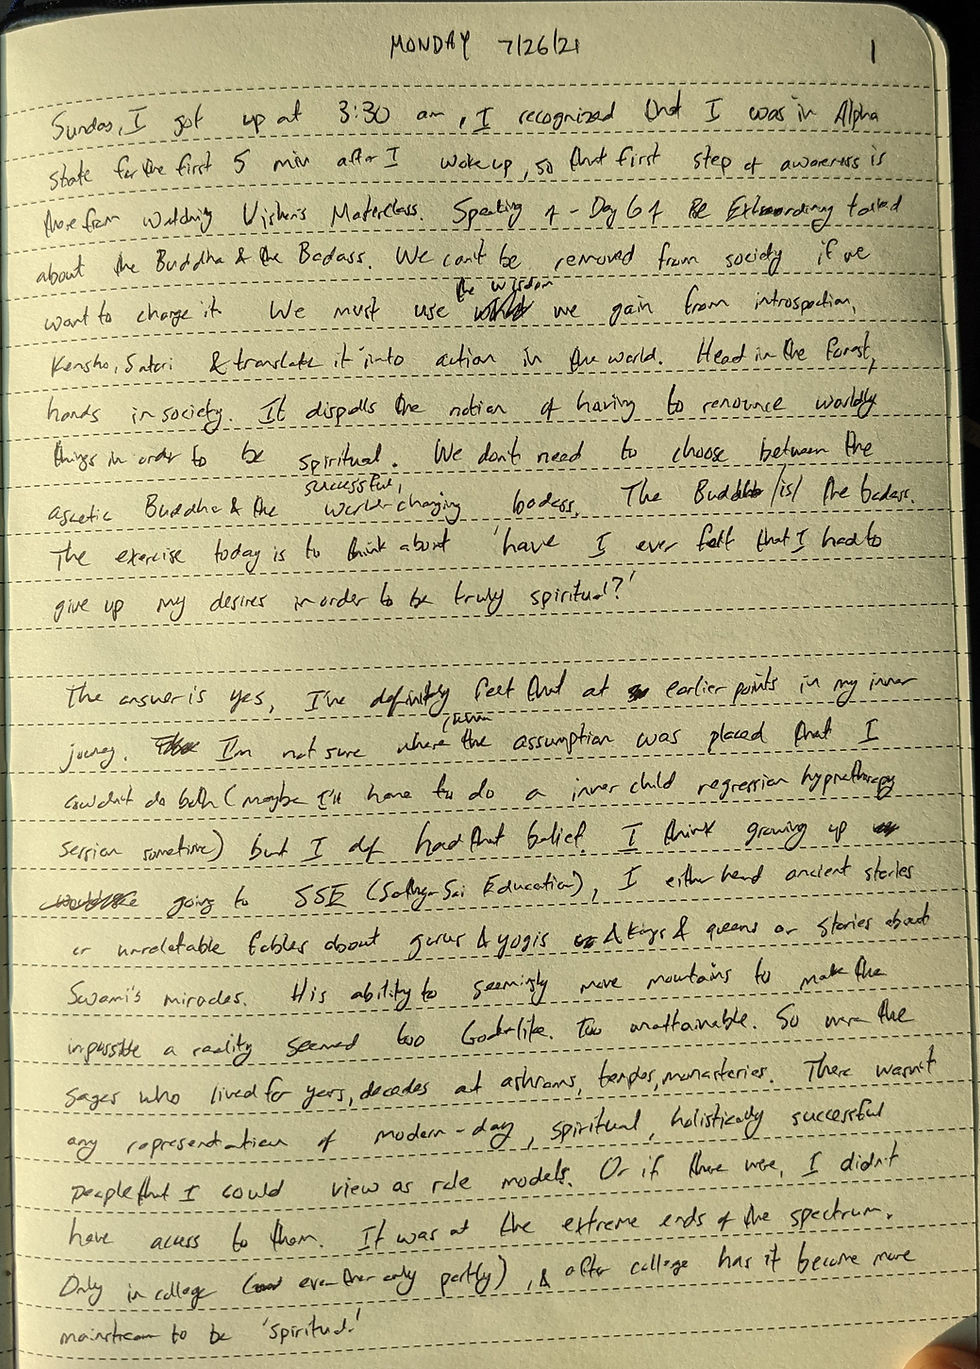 MONDAY 7/26/21 1
Sunday, I got up at 3:30 am, I recognized that I was in Alpha
state for the first 5 min after I woke up, so that first step of awareness is
there from watching Vishen's Masterclass. Speaking of - Day 6 of Be Extraordinary talked
about the Buddha & the Badass. We can't be removed from society if we
want to change it. We must use the wisdom we gain from introspection,
Kensho, Satori & translate it into action in the world. Head in the forest,
hands in society. It dispells the notion of having to renounce worldly
things in order to be spiritual. We don't need to choose between the
ascetic Buddha & the successful, world-changing badass. The Buddha /is/ the badass.
The exercise today is to think about 'have I ever felt that I had to
give up my desires in order to be truly spiritual?'
The answer is yes, I've definitely felt that at earlier points in my inner
journey. I'm not sure where the assumption was placed that I
couldn't do both (maybe I'll have to do a inner child regression hypnotherapy
session sometime) but I def had that belief. I think growing up
going to SSE (Sathya Sai Education), I either heard ancient stories
or unrelatable fables about gurus & yogis & kings & queens or stories about
Swami's miracles. His ability to seemingly move mountains to make the
impossible a reality seemed too Godlike. Too unattainable. So were the
sages who lived for years, decades at ashrams, temples, monasteries. There wasn't
any representation of modern-day, spiritual, holistically successful
people that I could view as role models. Or if there were, I didn't
have acess to them. It was at the extreme ends of the spectrum.
Only in college (even then only partly), & after college has it become more
mainstream to be 'spiritual.'